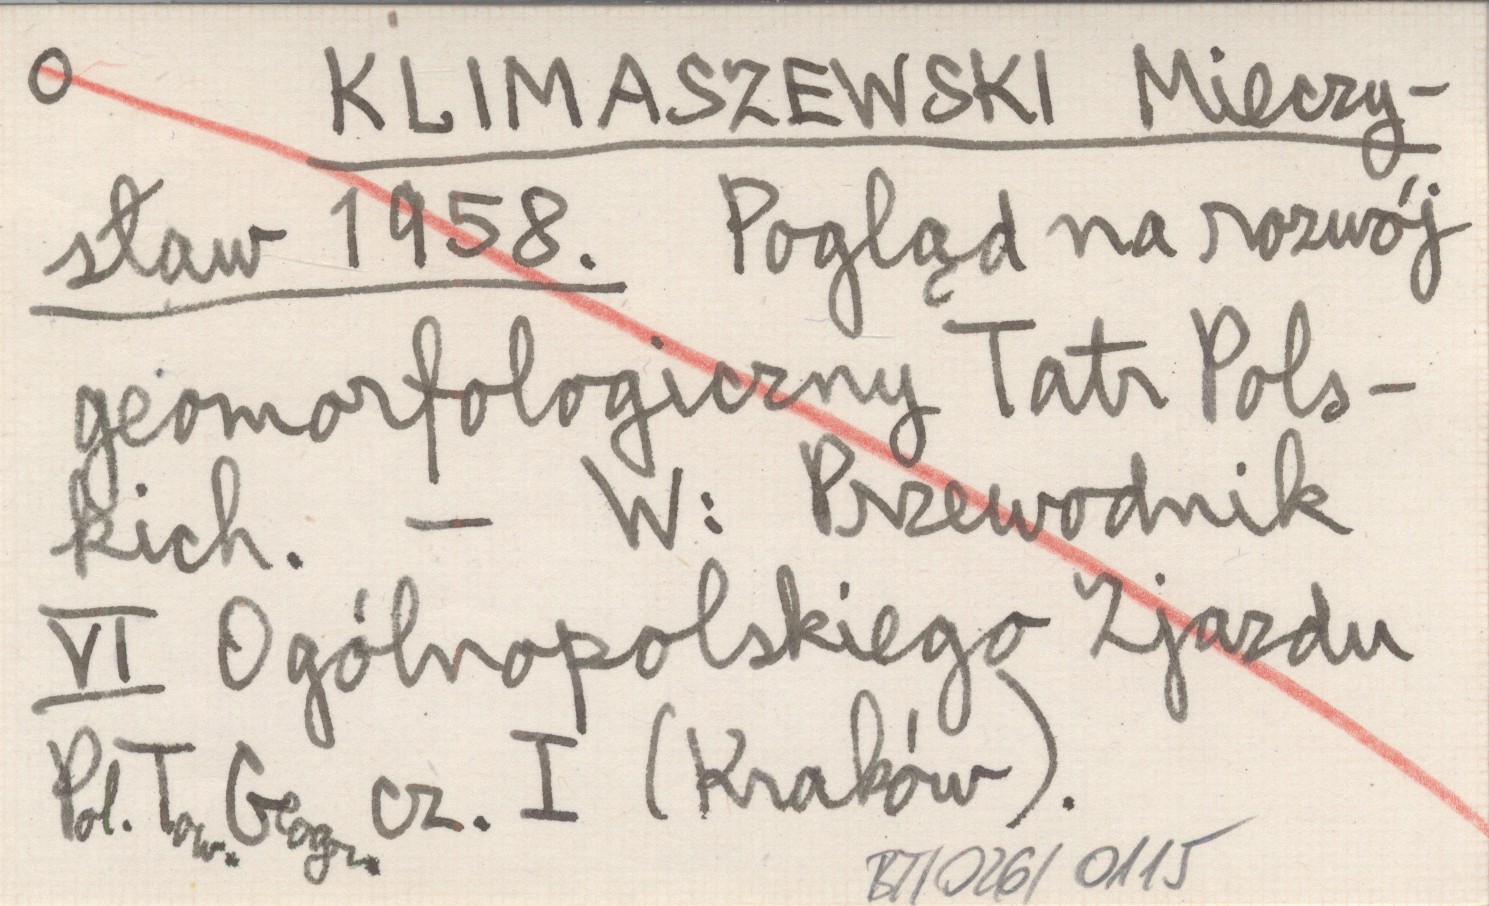 O KLIMASZEWSKI Mieczy-
sław 1958. Pogląd na rozwój
geomorfologiczny Tatr Pols-
kich. — W: Przewodnik
VI Ogólnopolskiego Zjazdu
Pol. Tow. Geogr. cz. I (Kraków).
BT/026/0115